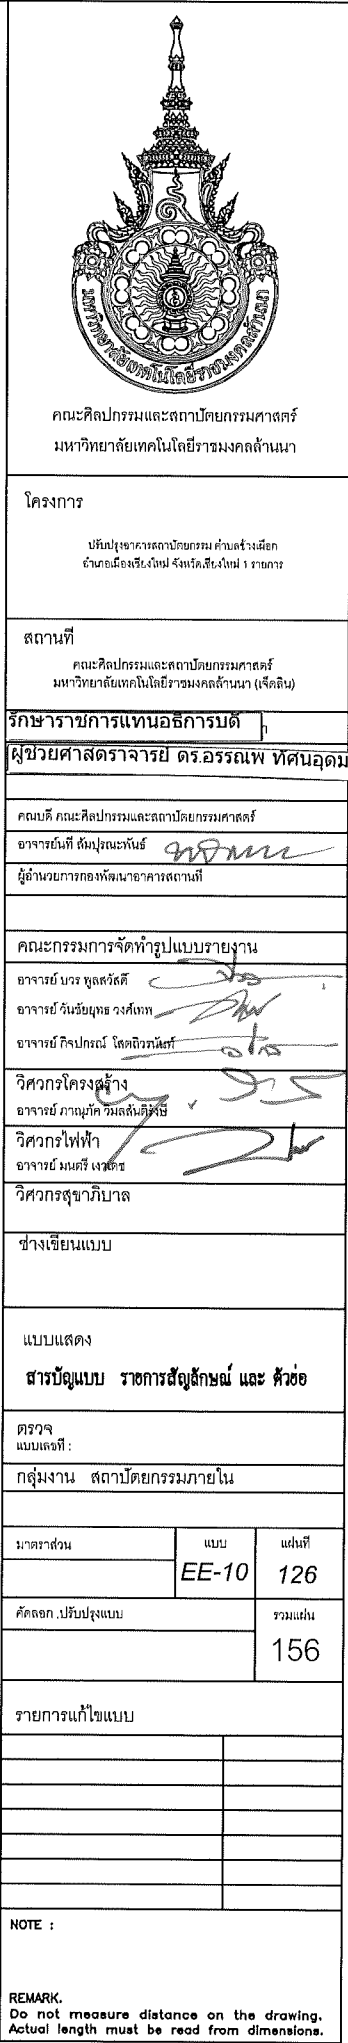 มหาวิทยาลัยเทคโนโลยีราชมงคลล้านนา
คณะศิลปกรรมและสถาปัตยกรรมศาสตร์
มหาวิทยาลัยเทคโนโลยีราชมงคลล้านนา
โครงการ
ปรับปรุงอาคารสถาปัตยกรรม ตำบลช้างเผือก
อำเภอเมืองเชียงใหม่ จังหวัดเชียงใหม่ 1 รายการ
สถานที่
คณะศิลปกรรมและสถาปัตยกรรมศาสตร์
มหาวิทยาลัยเทคโนโลยีราชมงคลล้านนา (เจ็ดลิน)
รักษาราชการแทนอธิการบดี
ผู้ช่วยศาสตราจารย์ ดร.อรรณพ ทัศนอุดม
คณบดี คณะศิลปกรรมและสถาปัตยกรรมศาสตร์
อาจารย์นที สัมปุรณะพันธ์
ผู้อำนวยการกองพัฒนาอาคารสถานที่
คณะกรรมการจัดทำรูปแบบรายงาน
อาจารย์ บวร พูลสวัสดิ์
อาจารย์ วันชัยยุทธ วงศ์เทพ
อาจารย์ กิจปกรณ์
วิศวกรโครงสร้าง
อาจารย์ ภาณุภัค
วิศวกรไฟฟ้า
อาจารย์ มนตรี เงาเดช
วิศวกรสุขาภิบาล
ช่างเขียนแบบ
แบบแสดง
สารบัญแบบ รายการสัญลักษณ์ และ ตัวย่อ
ตรวจ
แบบเลขที่ :
กลุ่มงาน สถาปัตยกรรมภายใน
มาตราส่วน แบบ แผ่นที่
EE-10 126
คัดลอก .ปรับปรุงแบบ รวมแผ่น
156
รายการแก้ไขแบบ
NOTE :
REMARK.
Do not measure distance on the drawing.
Actual length must be read from dimensions.